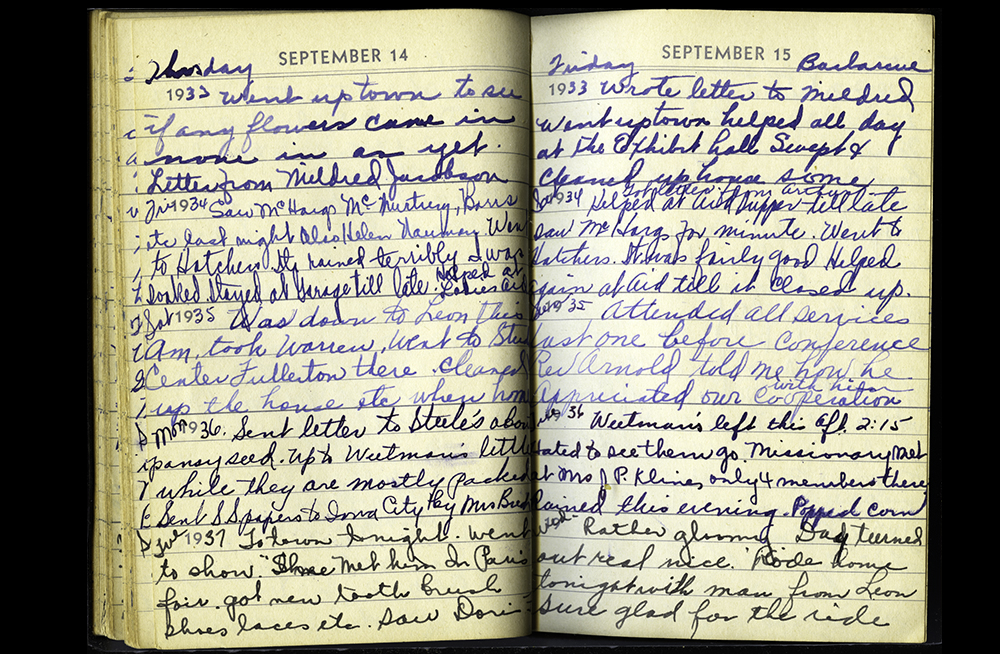 SEPTEMBER 14
Thursday
1933 Went uptown to see
if any flowers came in
none in as yet.
Letter from Mildred Jacobson
Fri 1934 Saw McHargs Mc
etc last night Also Helen Went
to Hatchers Its rained terribly & was
soaked. Stayed at Garage till late. Helped at
Ladies aid
Sat 1935 Was down to Leon this
Am. took Warren, Went to
Center Fullerton there. cleaned
up the house etc when home
Mon 1936. Sent letter to Steele's about
pansy seed. Up to Weetman's little
while they are mostly packed
Sent S S papers to Iowa City by Mrs
Tue 1937 To town tonight. Went
to show. "Shme Met him In Paris
fair. got new tooth brush
shoes laces etc. saw Doris
SEPTEMBER 15
Friday Barbarme
1933 Wrote letter to Mildred
Went uptown helped all day
at the Exhibit hall Swept &
cleaned up house some
Got letter from
Sat 1934 Helped at Aid Supper till late
saw McHargs for minute. Went to
Hatchers. It was fairly good Helped
again at Aid till it closed up.
35 Attended all services
last one before Conference
Rev Arnold told me how he
with him
Appriciated our Cooperation
36 Weetman's left this Aft. 2:15
Hated to see them go. Missionary met
at Mrs J P. Klines only 4 members there
Rained this evening. Popped corn
Wed Rather gloomy Day turned
out real nice. Rode home
tonight with man from Leon
sure glad for the ride